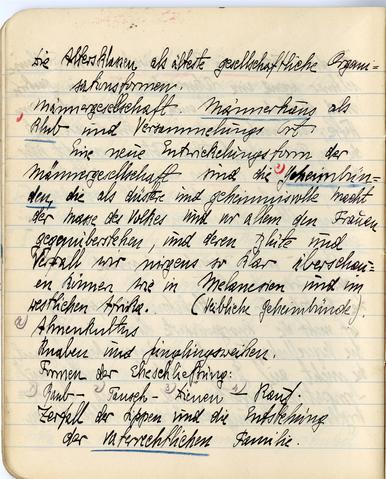 Die Altersklassen als älteste gesellschaftliche Organi-
sationsformen.
Männergesellschaft Männerhaus als
Klub und Versammelungs Ort
Eine neue Entwickelungsform der
Männergesellschaft sind die Geheimbün-
den, die als düstere und geheimnisvolle Macht
der Masse des Volkes und vor allem den Frauen
gegenüberstehen, und deren Blüte und
Verfall wir nirgens so klar überschau-
en können wie in Melanesien und im
westlichen Afrika. (Weibliche Geheimbünde).
Ahnenkultus
Knaben und Jünglingsweihen.
Formen der Eheschließung:
1) Raub – 2) Tausch – 3) Dienen 4) – Kauf.
Zerfall der Sippen und die Entstehung
der Vaterrechtlichen Familie.